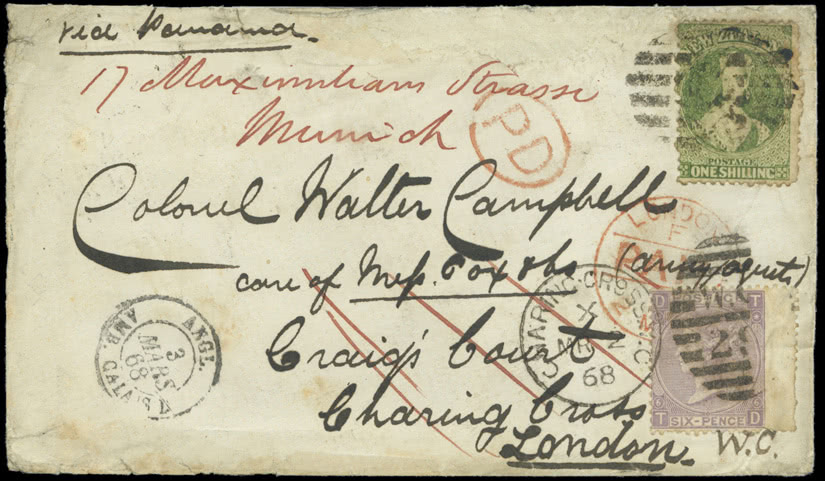 via Panama
17 Maximilians Strasse
Munich
PD
Colonel Walter Campbell
care of Mess. Cox & Co (army agents)
Craig's Court
Charing Cross
London W.C.
POSTAGE
ONE SHILLING
LONDON
CHARING CROSS W.C
68
D T
6 6
T SIX-PENCE D
ANGL.
3
MARS
68
AMB. CALAIS